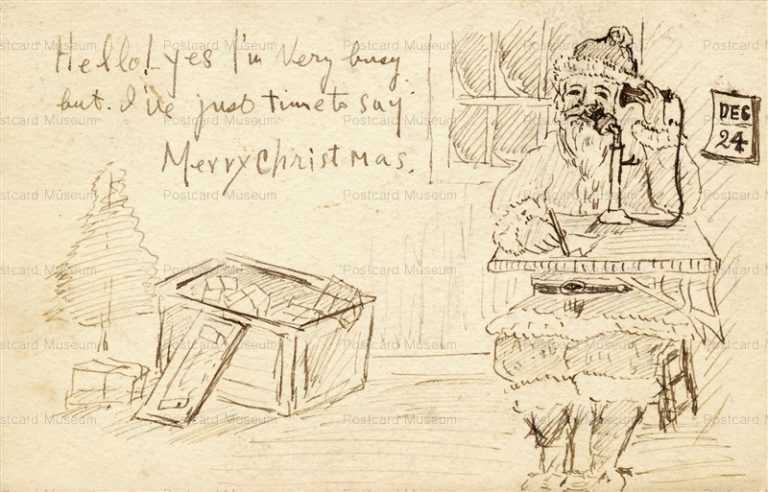 Hello! yes I'm Very busy
but. I've just time to say
Merry Christmas.
DEC
24
Postcard Museum